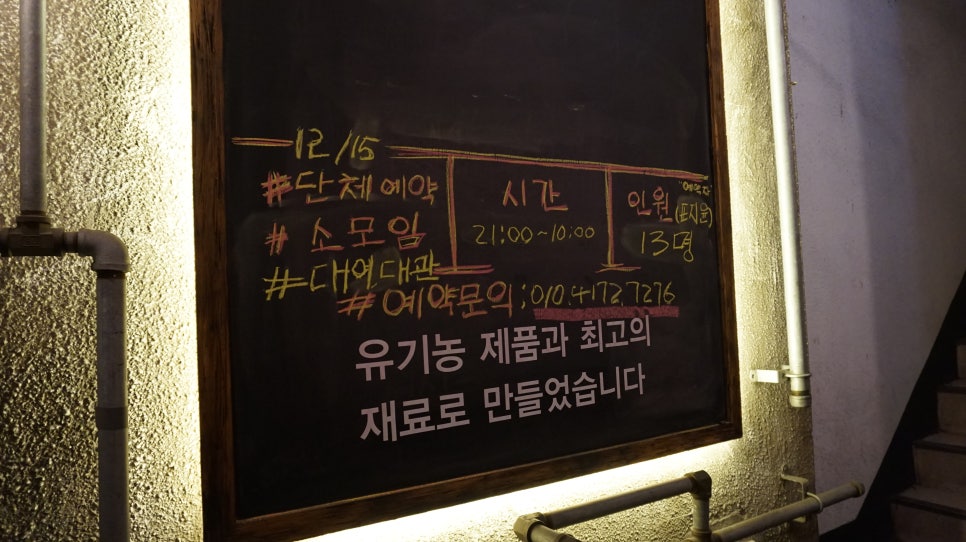 12/15
#단체예약
#소모임
#대여대관
시간
21:00~10:00
예약자
인원(표지윤)
13명
#예약문의:010.4172.7276
유기농 제품과 최고의
재료로 만들었습니다